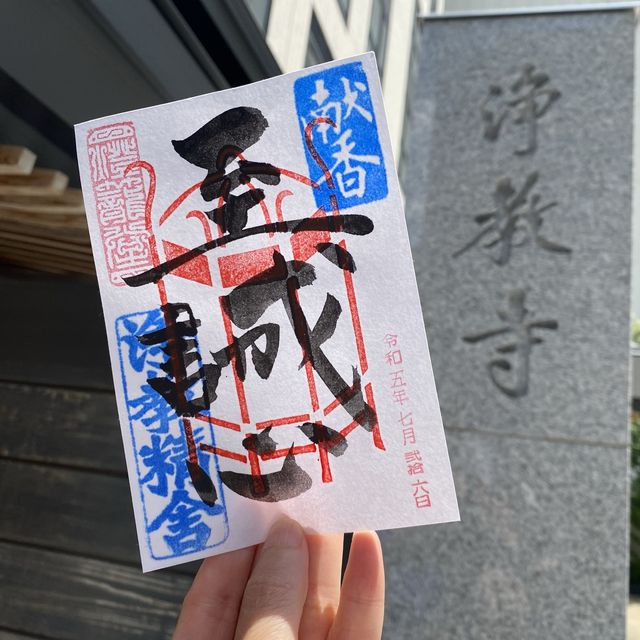 献香
至誠心
浄教精舎
令和五年七月弐拾六日
浄教寺